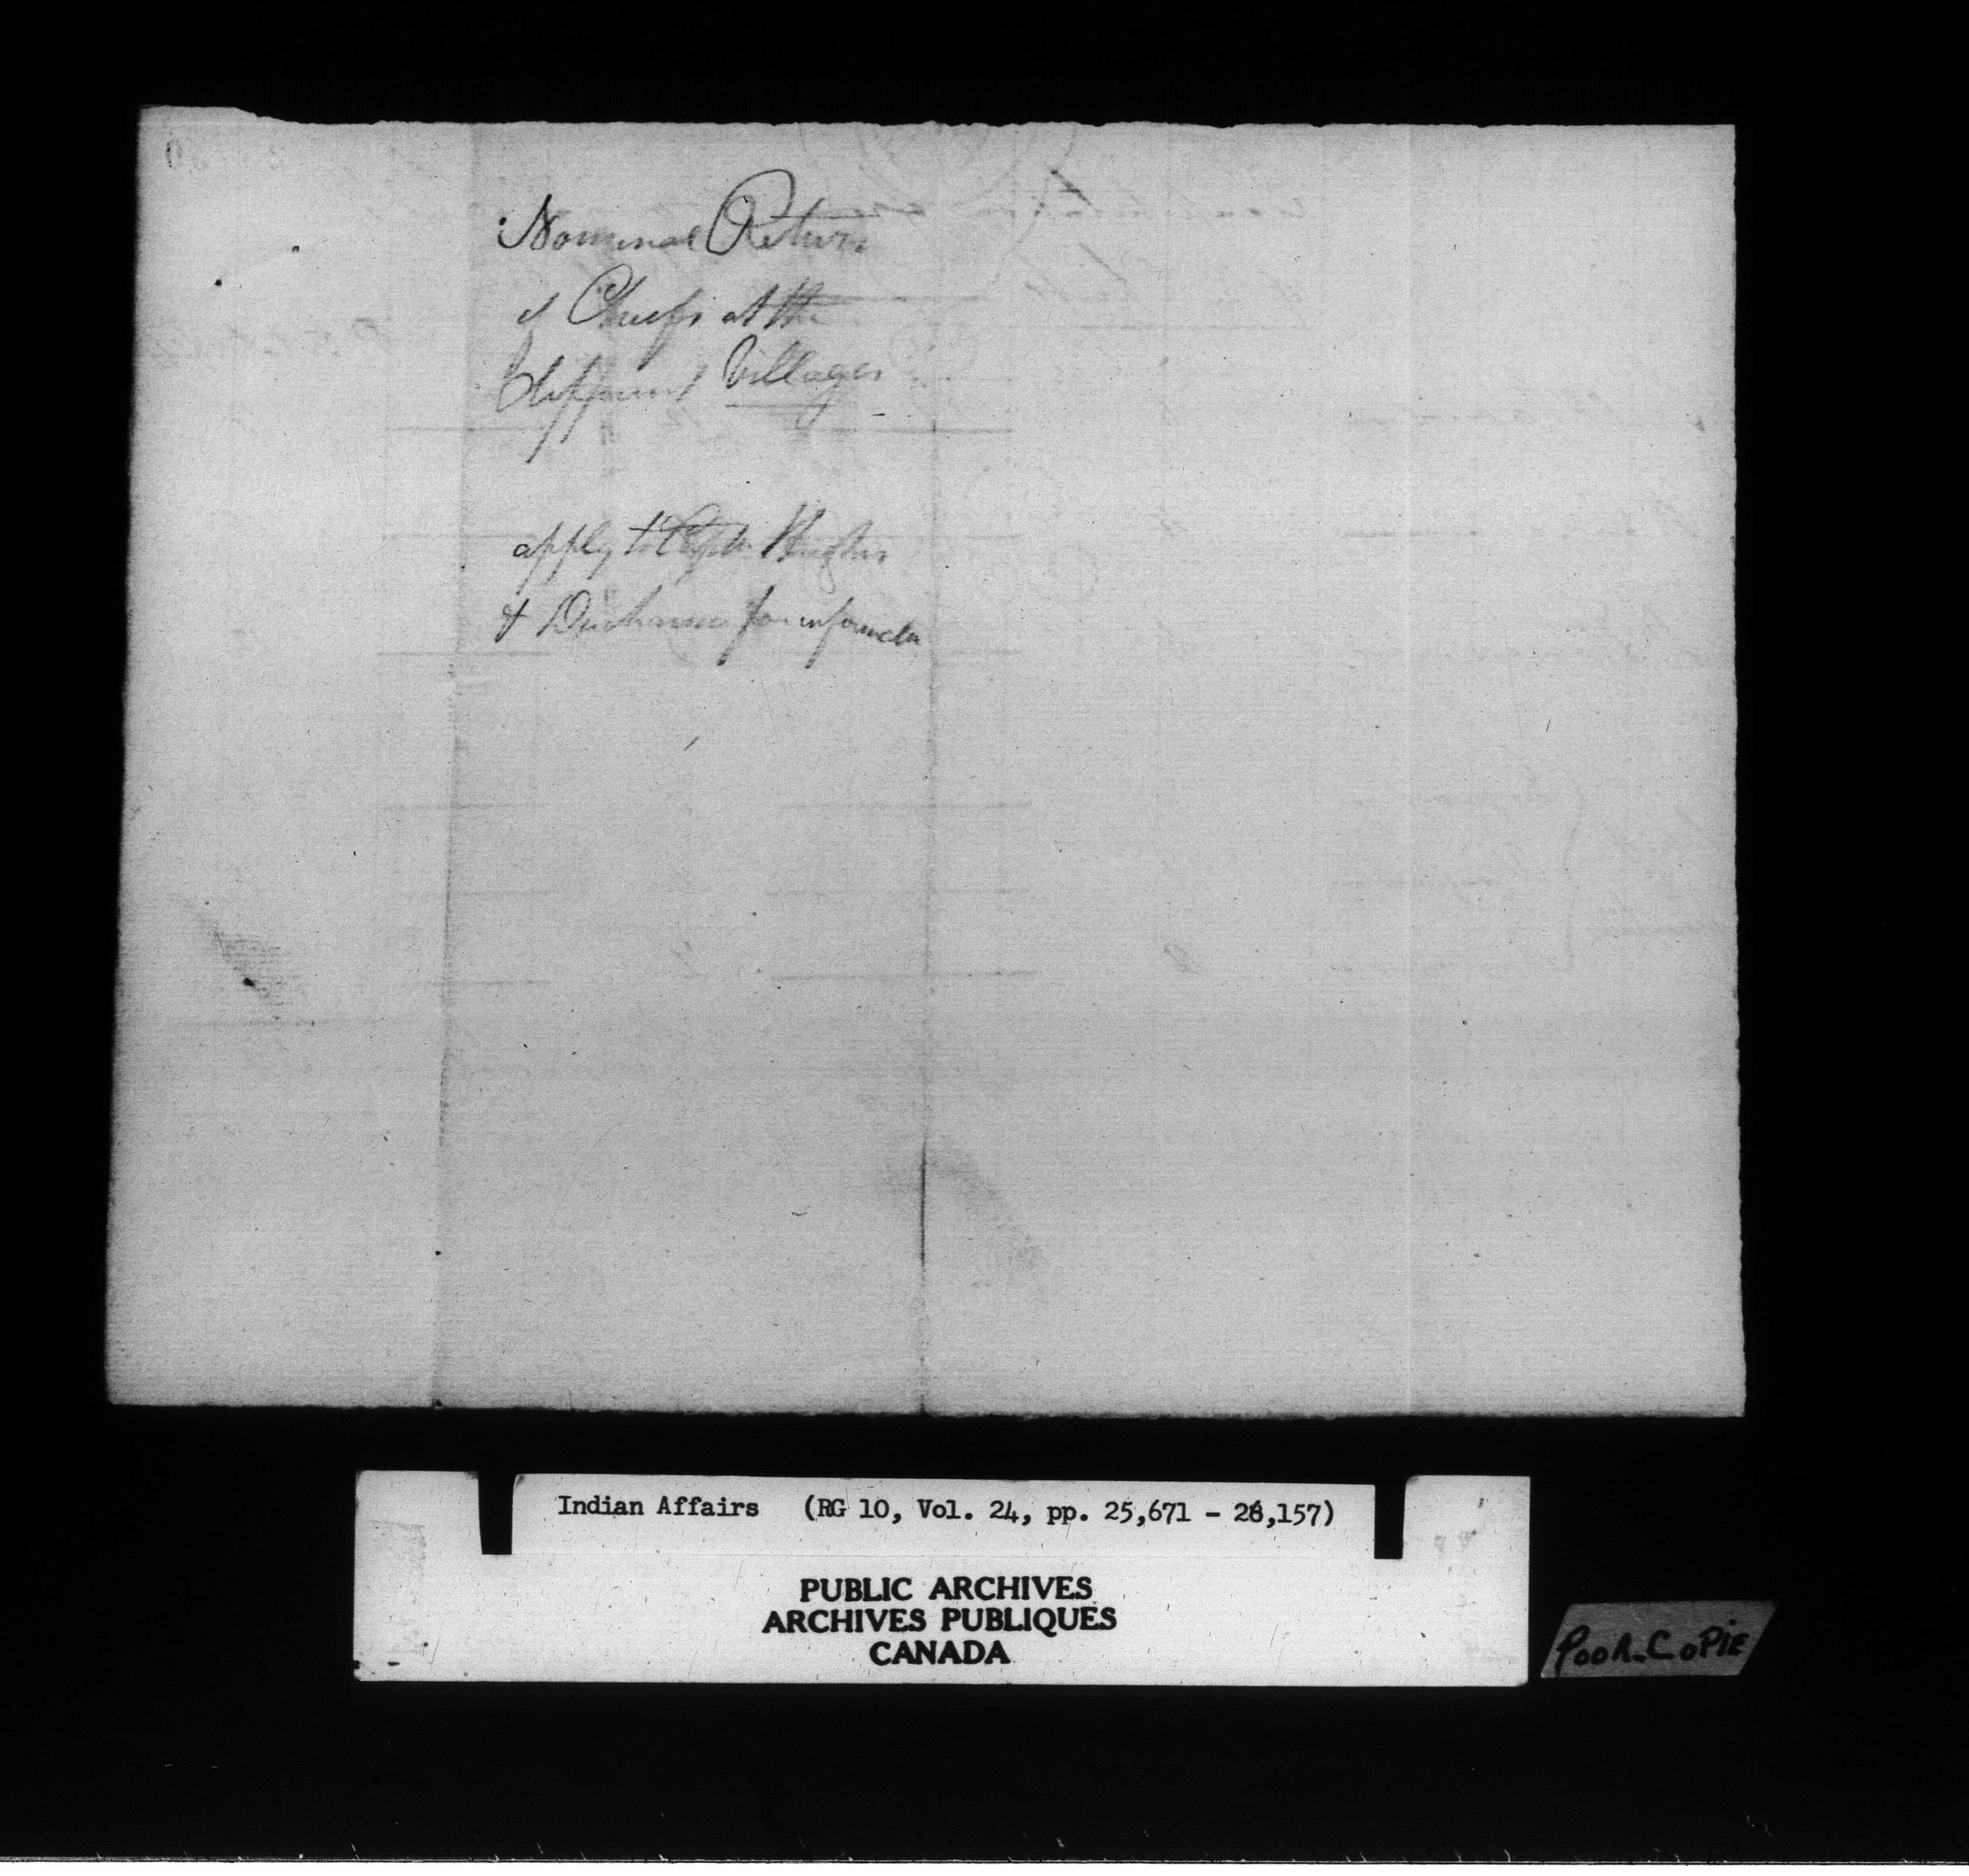 Nominal Return
of Chiefs at the
different Villages
apply to Captn Hughes
& Ducharme for informatn
Indian Affairs (RG 10, Vol. 24, pp. 25,671 - 26,157)
PUBLIC ARCHIVES
ARCHIVES PUBLIQUES
CANADA
POOR_COPIE